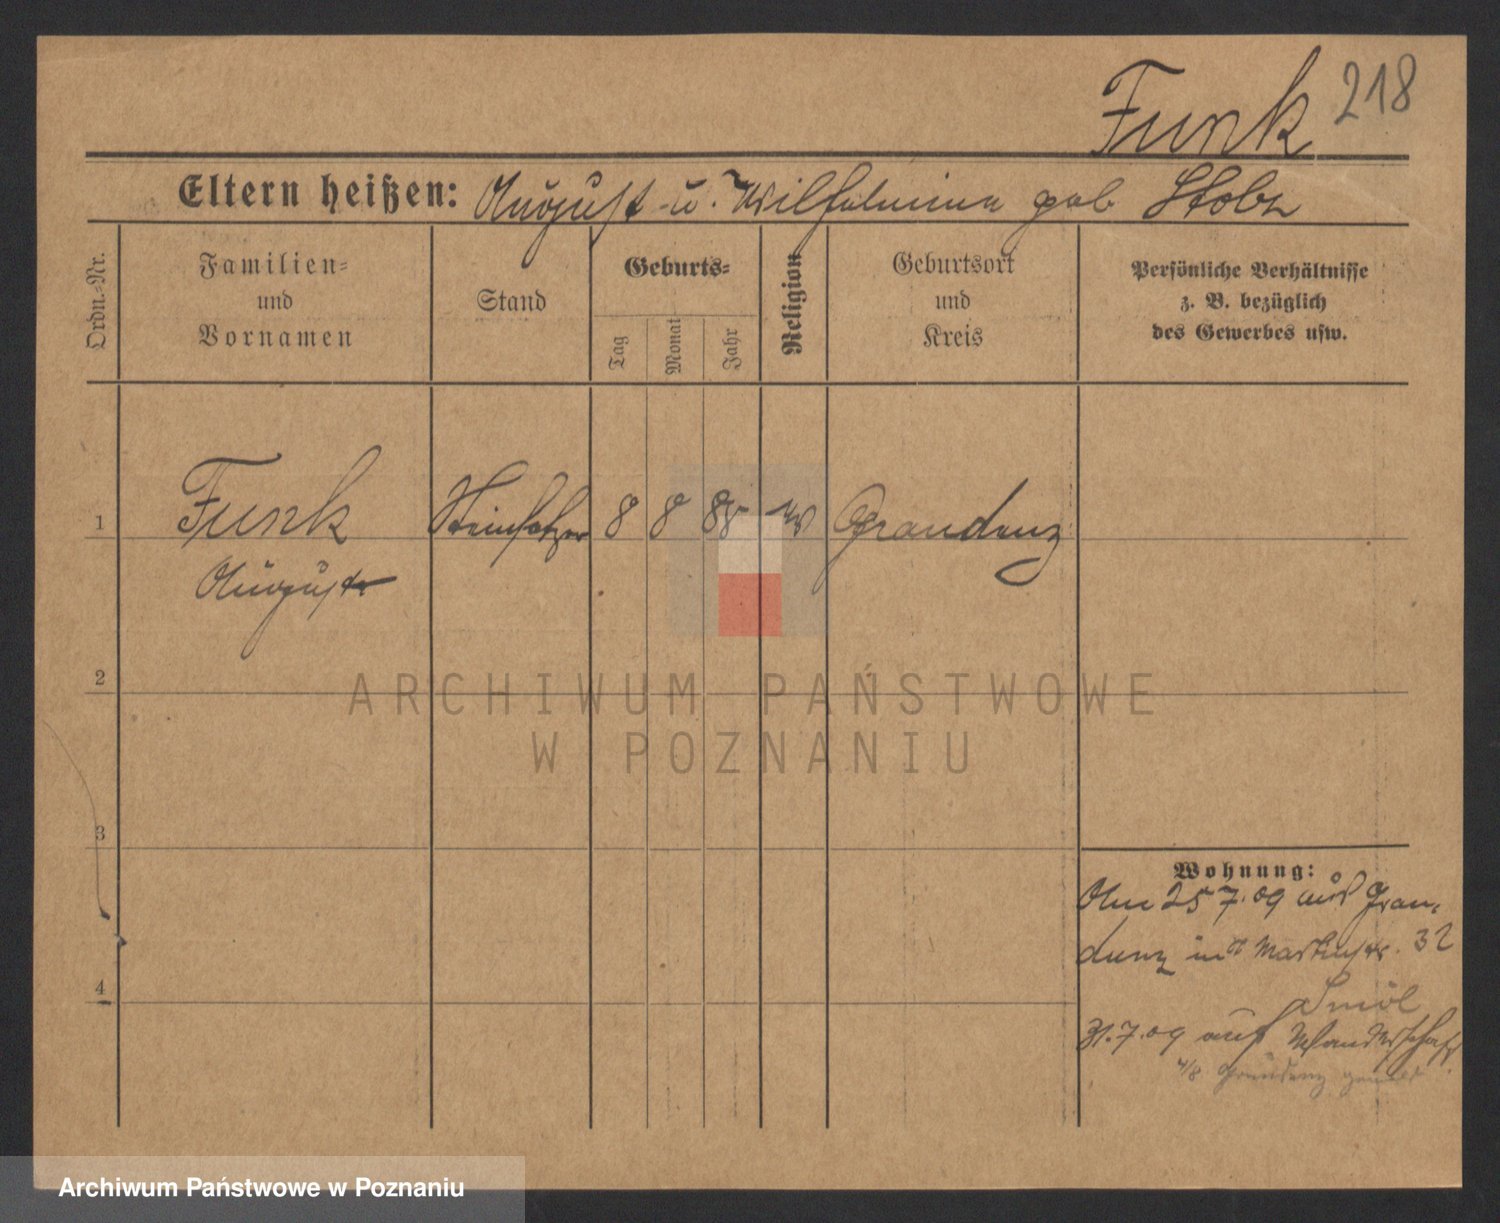 Funk 218
Eltern heißen: August u. Wilhelmine geb Stobz
Ordn.-Nr.
Familien-
und
Vornamen
Stand
Geburts-
Tag
Monat
Jahr
Religion
Geburtsort
und
Kreis
Persönliche Verhältnisse
z. B. bezüglich
des Gewerbes usw.
1 Funk Steinsetzer 8 8 88 Graudenz
August
2
ARCHIWUM PAŃSTWOWE
W POZNANIU
3
Wohnung:
25 7. 09 aus Grau-
denz 32
4
31. 7. 09 auf Wanderschaft
4/8 Graudenz gemeldet
Archiwum Państwowe w Poznaniu